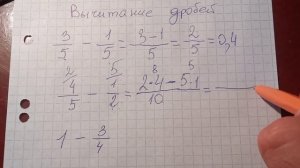 Вычитание дробей
3/5 - 1/5 = 3-1/5 = 2/5 = 0,4
2/ 5/ 8 5
4/5 - 1/2 = 2·4-5·1/10 =
1 - 3/4